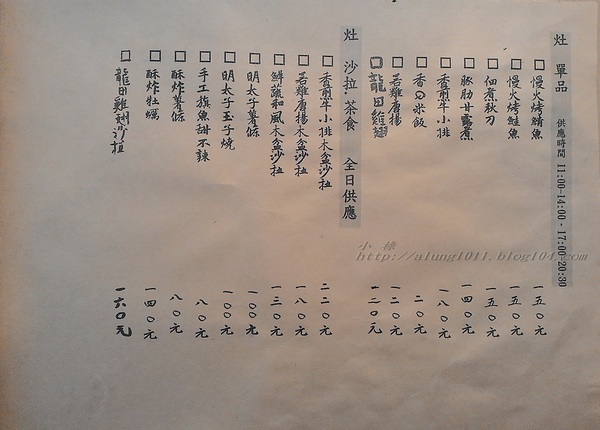 灶 單品 供應時間 11:00-14:00、17:00-20:30
□慢火烤鯖魚 一五○元
□慢火烤鮭魚 一五○元
□佃煮秋刀 一五○元
□豚肋甘露煮 一四○元
□香煎牛小排 一八○元
□香Q米飯 二○元
□若雞唐揚 一二○元
□龍田雞翅 一二○元
灶 沙拉 茶食 全日供應
□香煎牛小排木盆沙拉 二二○元
□若雞唐揚木盆沙拉 一八○元
□鮮蔬和風木盆沙拉 一三○元
□明太子薯條 一○○元
□明太子玉子燒 一○○元
□手工旗魚甜不辣 八○元
□酥炸薯條 八○元
□酥炸牡蠣 一四○元
□龍田雞翅沙拉 一六○元
小祿
http://alung1011.blog104.com